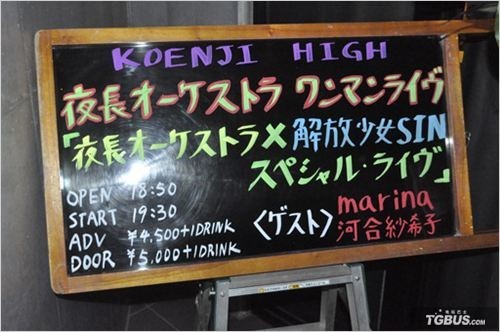 KOENJI HIGH
夜長オーケストラ ワンマンライヴ
「夜長オーケストラ×解放少女SIN
スペシャル・ライヴ」
OPEN 18:50
START 19:30
ADV ¥4,500+1DRINK
DOOR ¥5,000+1DRINK
〈ゲスト〉
marina
河合紗希子
TGBUS.COM